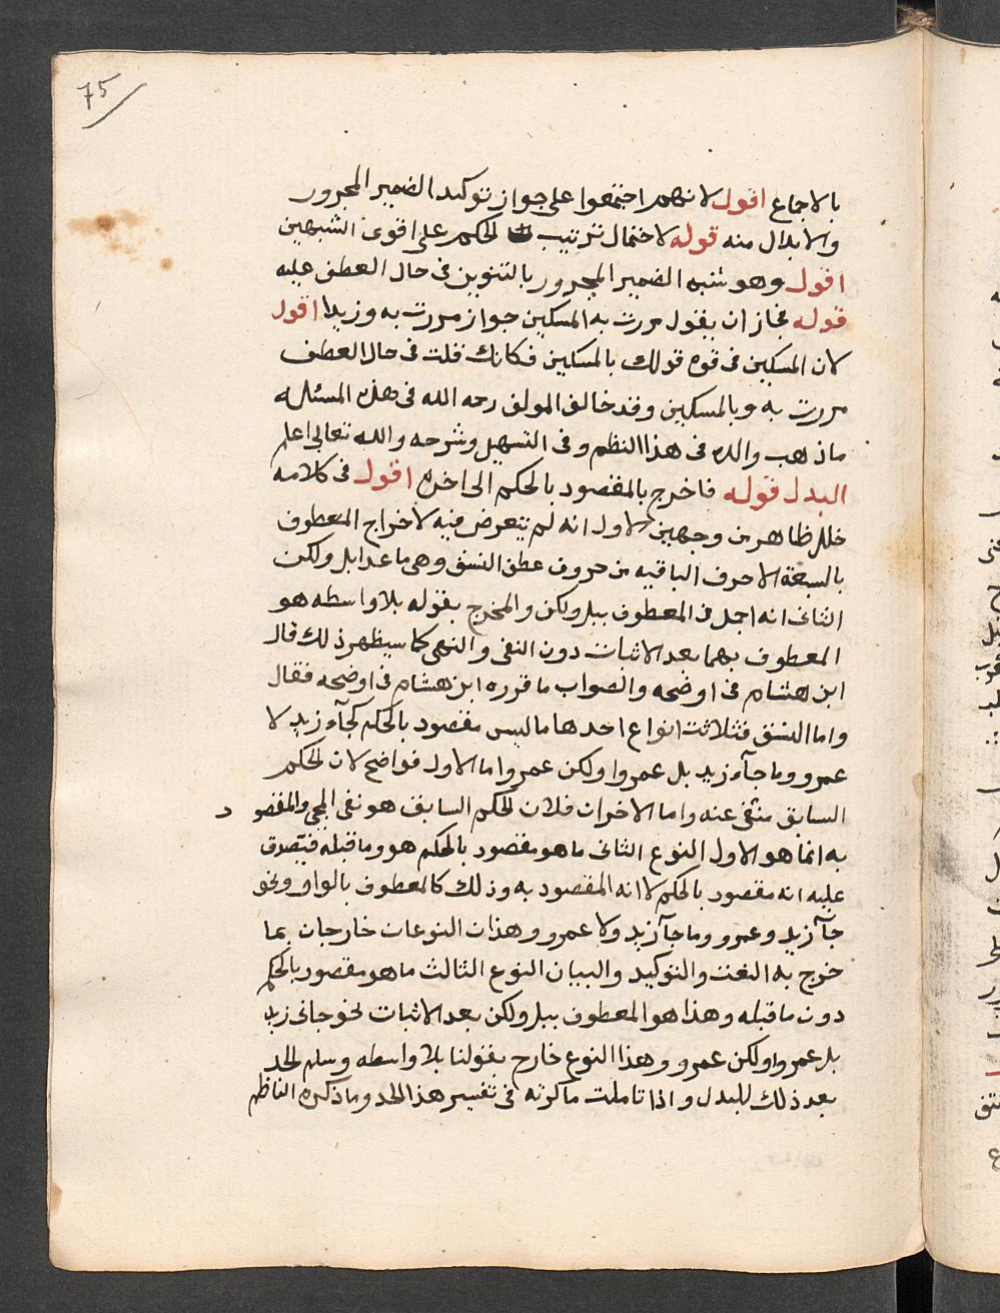 75
بالاجماع اقول لانهم اجتمعوا على جواز توكيد الضمير المجرور
والابدال منه قوله لاحتمال ترتيب الحكم على اقوى الشبهين
اقول وهو شبه الضمير المجرور بالتنوين فى حال العطف عليه
قوله فجاز ان يقول مررت به المسكين جواز مررت به وزيدا اقول
لان المسكين فى قوه قولك بالمسكين فكانك قلت فى حال العطف
مررت به وبالمسكين وقد خالف المولف رحمه الله فى هذه المسئله
ما ذهب والده فى هذا النظم وفى التسهيل وشرحه والله تعالى اعلم
البدل قوله فاخرج بالمقصود بالحكم الى اخره اقول فى كلامه
خلل ظاهر من وجهين الاول انه لم يتعرض فيه لاخراج المعطوف
بالسبعة الاحرف الباقيه من حروف عطف النسق وهى ما عدا بل ولكن
الثانى انه اجمل فى المعطوف ببل ولكن والمخرج بقوله بلا واسطه هو
المعطوف بهما بعد الاثبات دون النفى والنهى كما سيظهر ذلك قال
ابن هشام فى اوضحه والصواب ما قرره ابن هشام فى اوضحه فقال
واما النسق فثلاثت انواع احدها ما ليس مقصود بالحكم كجآء زيد لا
عمرو وما جآء زيد بل عمروا ولكن عمروا اما الاول فواضح لان الحكم
السابق منفى عنه واما الاخران فلان الحكم السابق هو نفى المجى والمقصود
به انما هو الاول النوع الثانى ما هو مقصود بالحكم هو وما قبله فيتصدق
عليه انه مقصود بالحكم لا انه المقصود به وذلك كالمعطوف بالواو ونحو
جآ زيد وعمرو وما جآ زيد ولا عمرو وهذان النوعان خارجان بما
خرج به النعت والتوكيد والبيان النوع الثالث ما هو مقصود بالحكم
دون ما قبله وهذا هو المعطوف ببل ولكن بعد الاثبات نحو جانى زيد
بل عمرو ولكن عمرو وهذا النوع خارج بقولنا بلا واسطه وسلم الحد
بعد ذلك للبدل واذا تاملت ما كرته فى تفسير هذا الحد وما ذكره الناظم